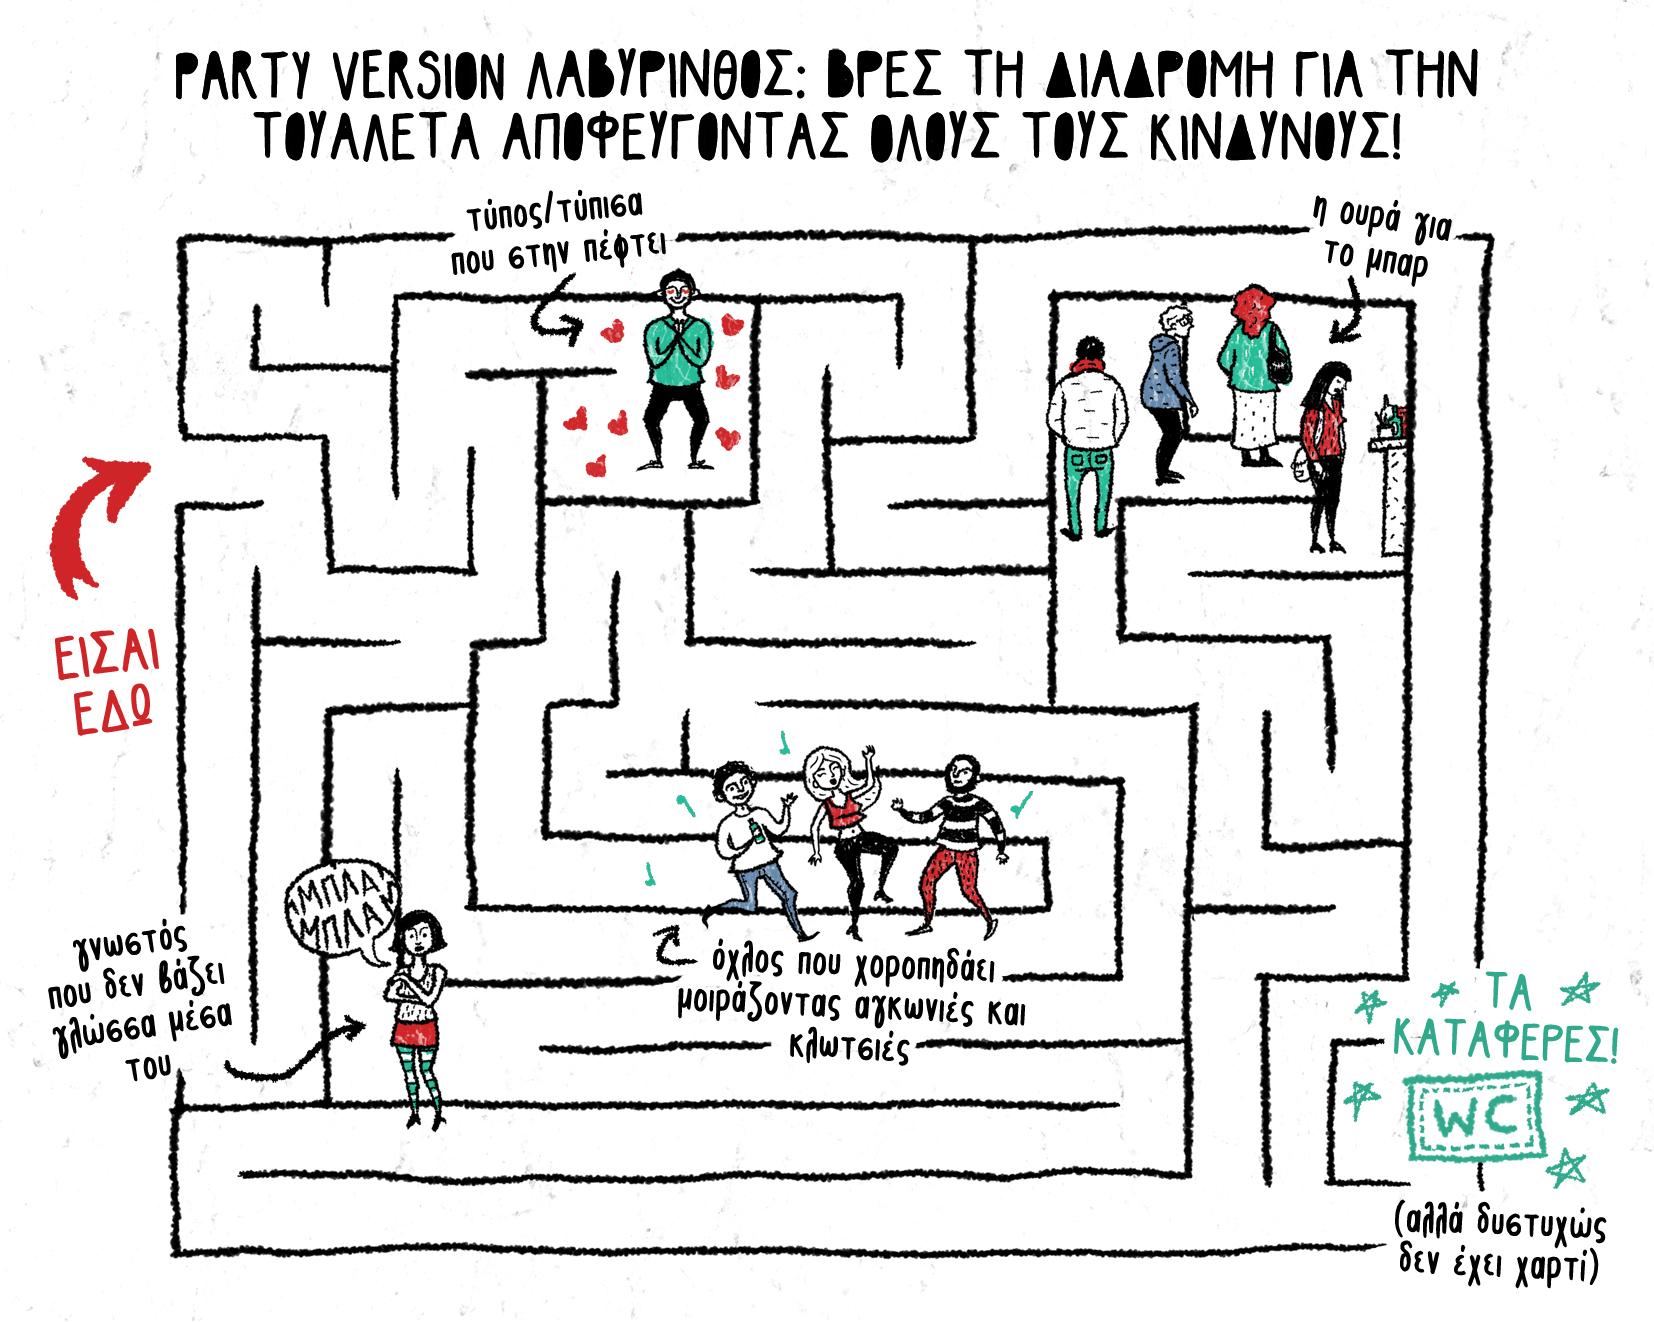 PARTY VERSION ΛΑΒΥΡΙΝΘΟΣ: ΒΡΕΣ ΤΗ ΔΙΑΔΡΟΜΗ ΓΙΑ ΤΗΝ
ΤΟΥΑΛΕΤΑ ΑΠΟΦΕΥΓΟΝΤΑΣ ΟΛΟΥΣ ΤΟΥΣ ΚΙΝΔΥΝΟΥΣ!
τύπος/τύπισα
που στην πέφτει
η ουρά για
το μπαρ
ΕΙΣΑΙ
ΕΔΩ
ΜΠΛΑ
ΜΠΛΑ
γνωστός
που δεν βάζει
γλώσσα μέσα
του
όχλος που χοροπηδάει
μοιράζοντας αγκωνιές και
κλωτσιές
ΤΑ
ΚΑΤΑΦΕΡΕΣ!
WC
(αλλά δυστυχώς
δεν έχει χαρτί)